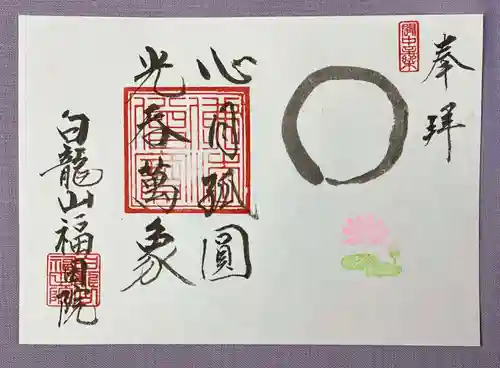 奉拝
心月孤圓
光呑萬象
白龍山福田院